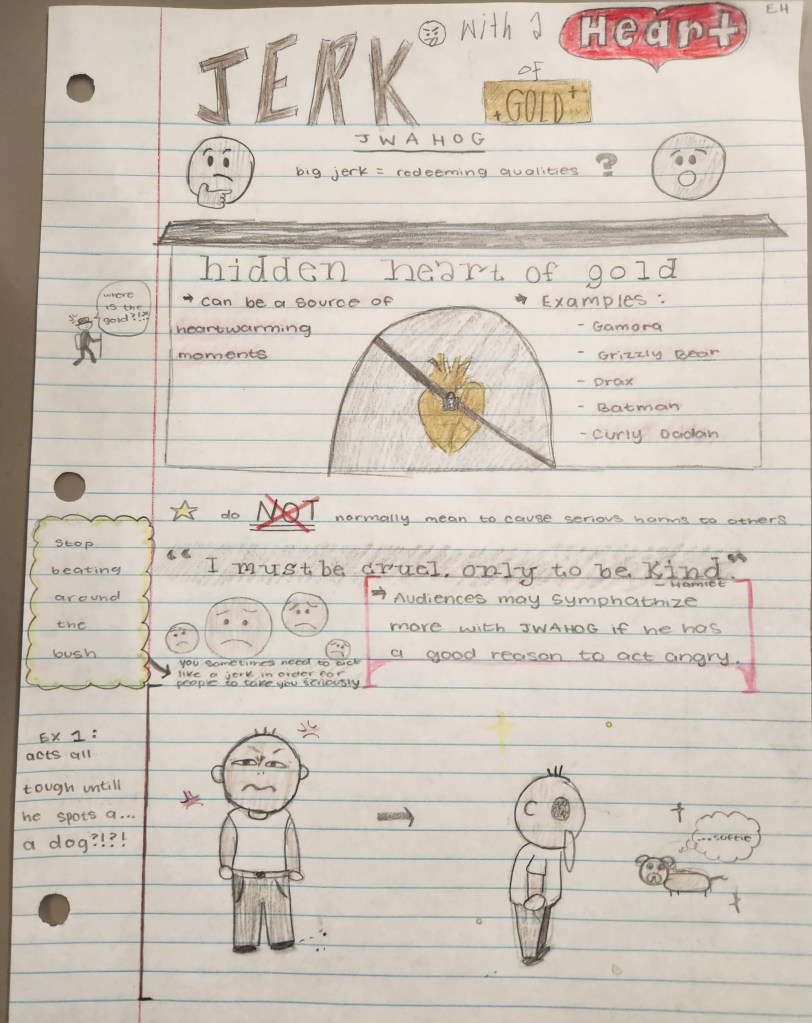 E.H
JERK with a Heart
of
GOLD
JWAHOG
big jerk = redeeming qualities ?
hidden heart of gold
can be a source of
heartwarming
moments
Examples:
- Gamora
- Grizzly Bear
- Drax
- Batman
- Curly Dadan
where
is the
gold?!?!
do NOT normally mean to cause serious harms to others
"I must be cruel, only to be kind."
- Hamlet
Stop
beating
around
the
bush
Audiences may symphathize
more with JWAHOG if he has
a good reason to act angry.
you sometimes need to act
like a jerk in order for
people to take you seriously
EX 1:
acts all
tough untill
he spots a...
a dog?!?!
...softie